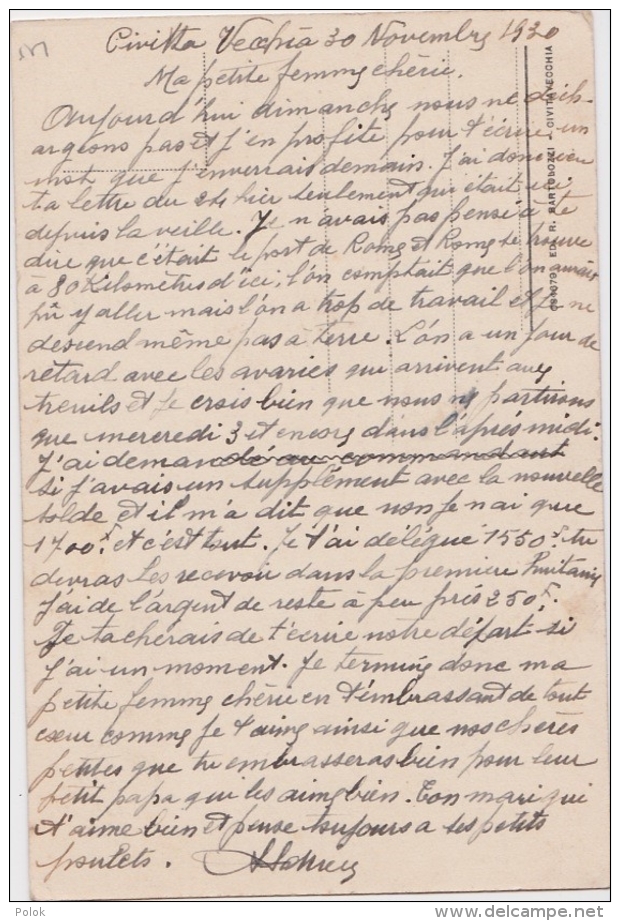 Civitta Vecchia 30 Novembre 1930
Ma petite femme chérie.
Aujourd'hui dimanche nous ne déch-
argeons pas et j'en profite pour t'écrire un
mot que j'enverrais demain. J'ai donc reçu
ta lettre du 24 hier seulement qui était ici
depuis la veille. Je n'avais pas pensé à te
dire que c'était le port de Rome et Rome se trouve
à 80 Kilomètres d'ici, l'on comptait que l'on aurait
pû y aller mais l'on a trop de travail et je ne
descend même pas à terre. L'on a un jour de
retard avec les avaries qui arrivent aux
treuils et je crois bien que nous ne partirons
que mercredi 3 et encore dans l'après midi.
J'ai demandé au commandant
si j'avais un supplément avec la nouvelle
solde et il m'a dit que non je n'ai que
1700f et c'est tout. Je t'ai délégué 1550f tu
devras les recevoir dans la première
J'ai de l'argent de reste à peu près 250f.
Je tacherais de t'écrire notre départ si
j'ai un moment. Je termine donc ma
petite femme chérie en t'embrassant de tout
cœur comme je t'aime ainsi que nos chères
petites que tu embrasseras bien pour leur
petit papa qui les aime bien. Ton mari qui
t'aime bien et pense toujours a ses petits
poulets.
ED. R. BARTOLOZZI - CIVITAVECCHIA
Polok
www.delcampe.net